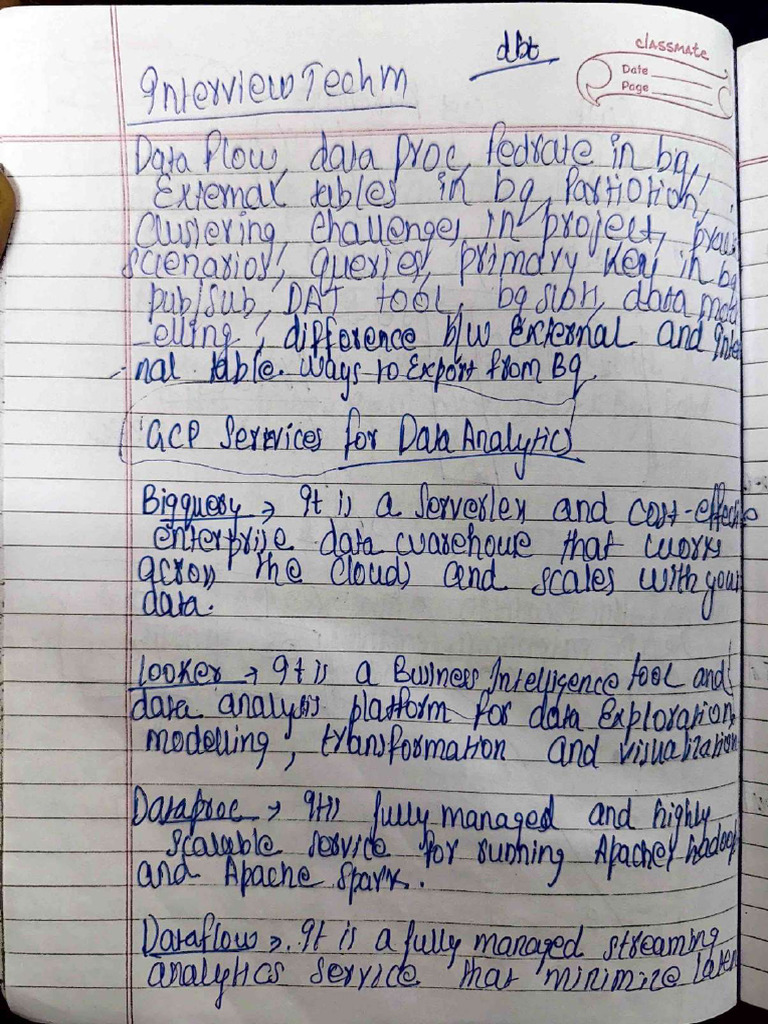 dbt
classmate
Date
Page
Interview Techm
Data Flow, data proc, Fedrate in bq,
External tables in bq, Partiotion,
Clustering, challenges in project,
scienarios, queries, primary key in bq
pub/sub, DAT tool, bq slot, data mod
-elling, difference b/w External and Inte
-nal table. ways to Export from Bq
GCP Services for Data Analytics
Bigquery → It is a serverless and cost-effecti
enterprise data warehouse that works
across the clouds and scales with your
data.
Looker → It is a Business Intelligence tool and
data analysis platform for data Exploration,
modelling, transformation and visualization
Dataproc → It is fully managed and highly
scalable service for running Apache Hadoop
and Apache Spark.
Dataflow → It is a fully managed streaming
analytics service that minimize laten